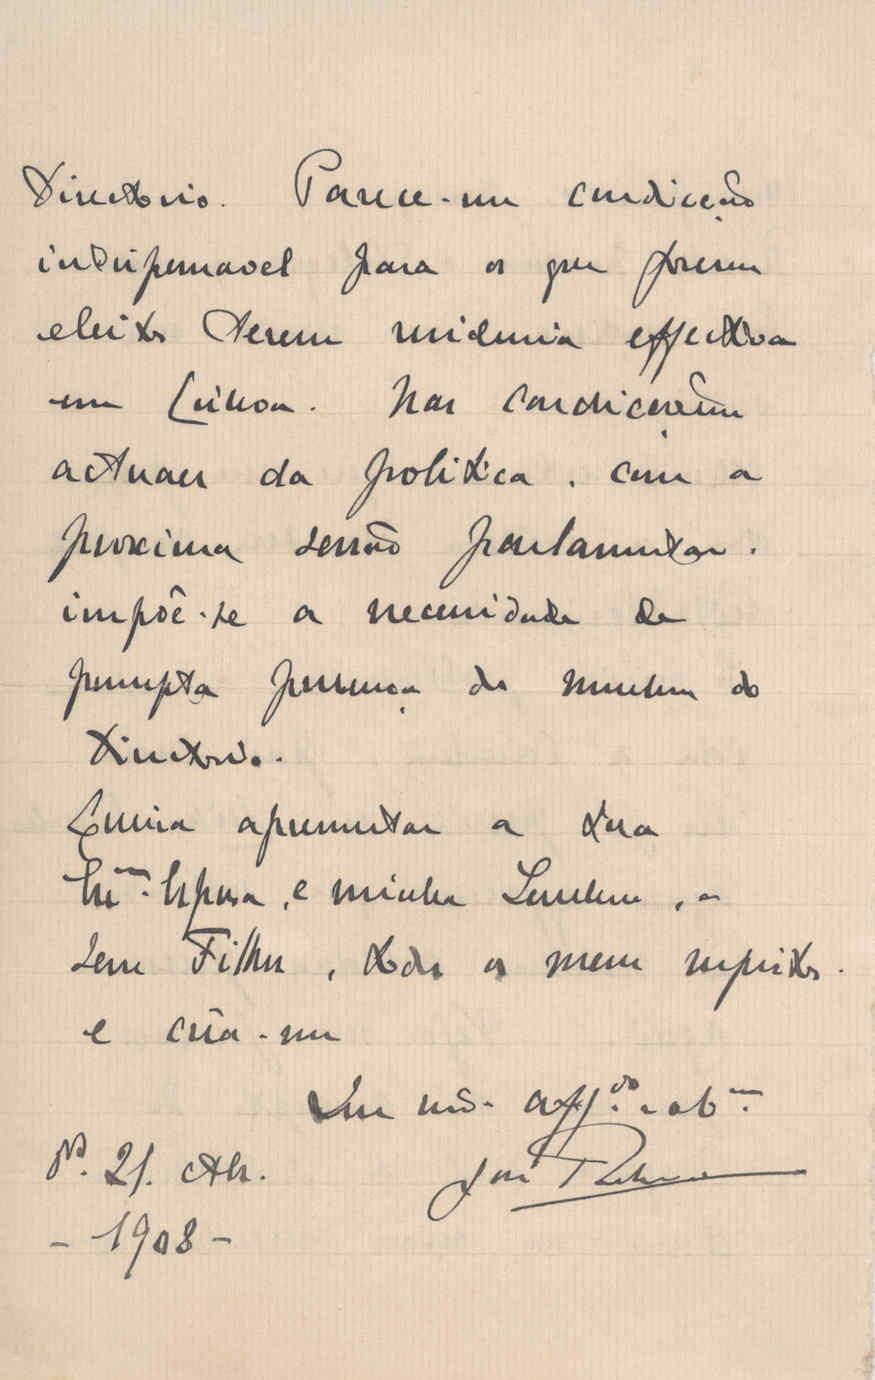 Directorio. Parece-me condicção
indispensavel para os que forem
eleitos terem residencia effectiva
em Lisboa. Nas condicções
actuaes da politica, com a
proxima sessão parlamentar.
impõe-se a necessidade da
prompta presença dos membros do
Directorio.
Queira apresentar a sua
Ex.ma Esposa, e minha Senhora, a
seus Filhos, todos os meus respeitos.
e creia-me
Seu am.º aff.do e ob.mo
José Relvas
21. Abr.
- 1908 -